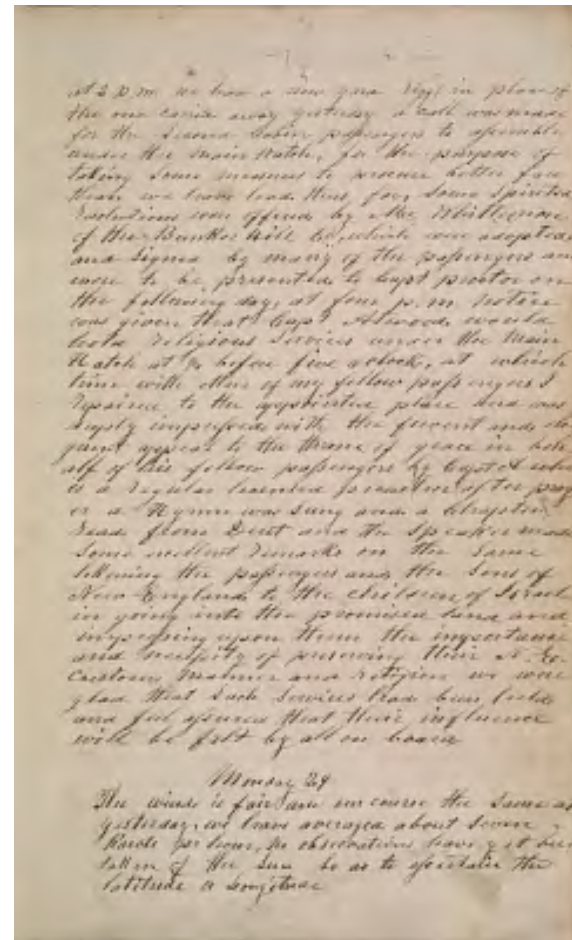 at 2 p.m. we have a new yard rigg in place of
the one carrid away yesterday a call was made
for the Second Cabin passengers to assemble
under the Main Hatch, for the purpose of
taking some measures to procure better fare
than we have had thus far, some spirited
resolutions were offered by Mr
of the Bunker Hill Co, which were adopted
and signed by many of the passengers and
were to be presented to Capt proctor on
the following day, at four p.m. notice
was given that Capt Atwood would
hold religious services under the Main
Hatch at ¼ before five oclock, at which
time with other of my fellow passengers I
repaired to the appointed place and was
deeply impressed with the fervent and elo
quent appeal to the throne of grace in beh
alf of his fellow passengers by Capt A who
is a regular licensed preacher, after pray
er a Hymn was sung and a Chapter
read from Deut and the Speaker made
some excellent remarks on the same
likening the passengers and the Sons of
New England to the Children of Israel
in going into the promised land and
impressing upon them the importance
and necessity of preserving their N. E.
Customs Manner and religion we were
glad that such services had been held
and feel assured that their influence
will be felt by all on board
Monday 29
The wind is fair and our course the same as
yesterday, we have averaged about seven
Knots per hour, no observations have yet been
taken of the Sun so as to ascertain the
latitude & longitude